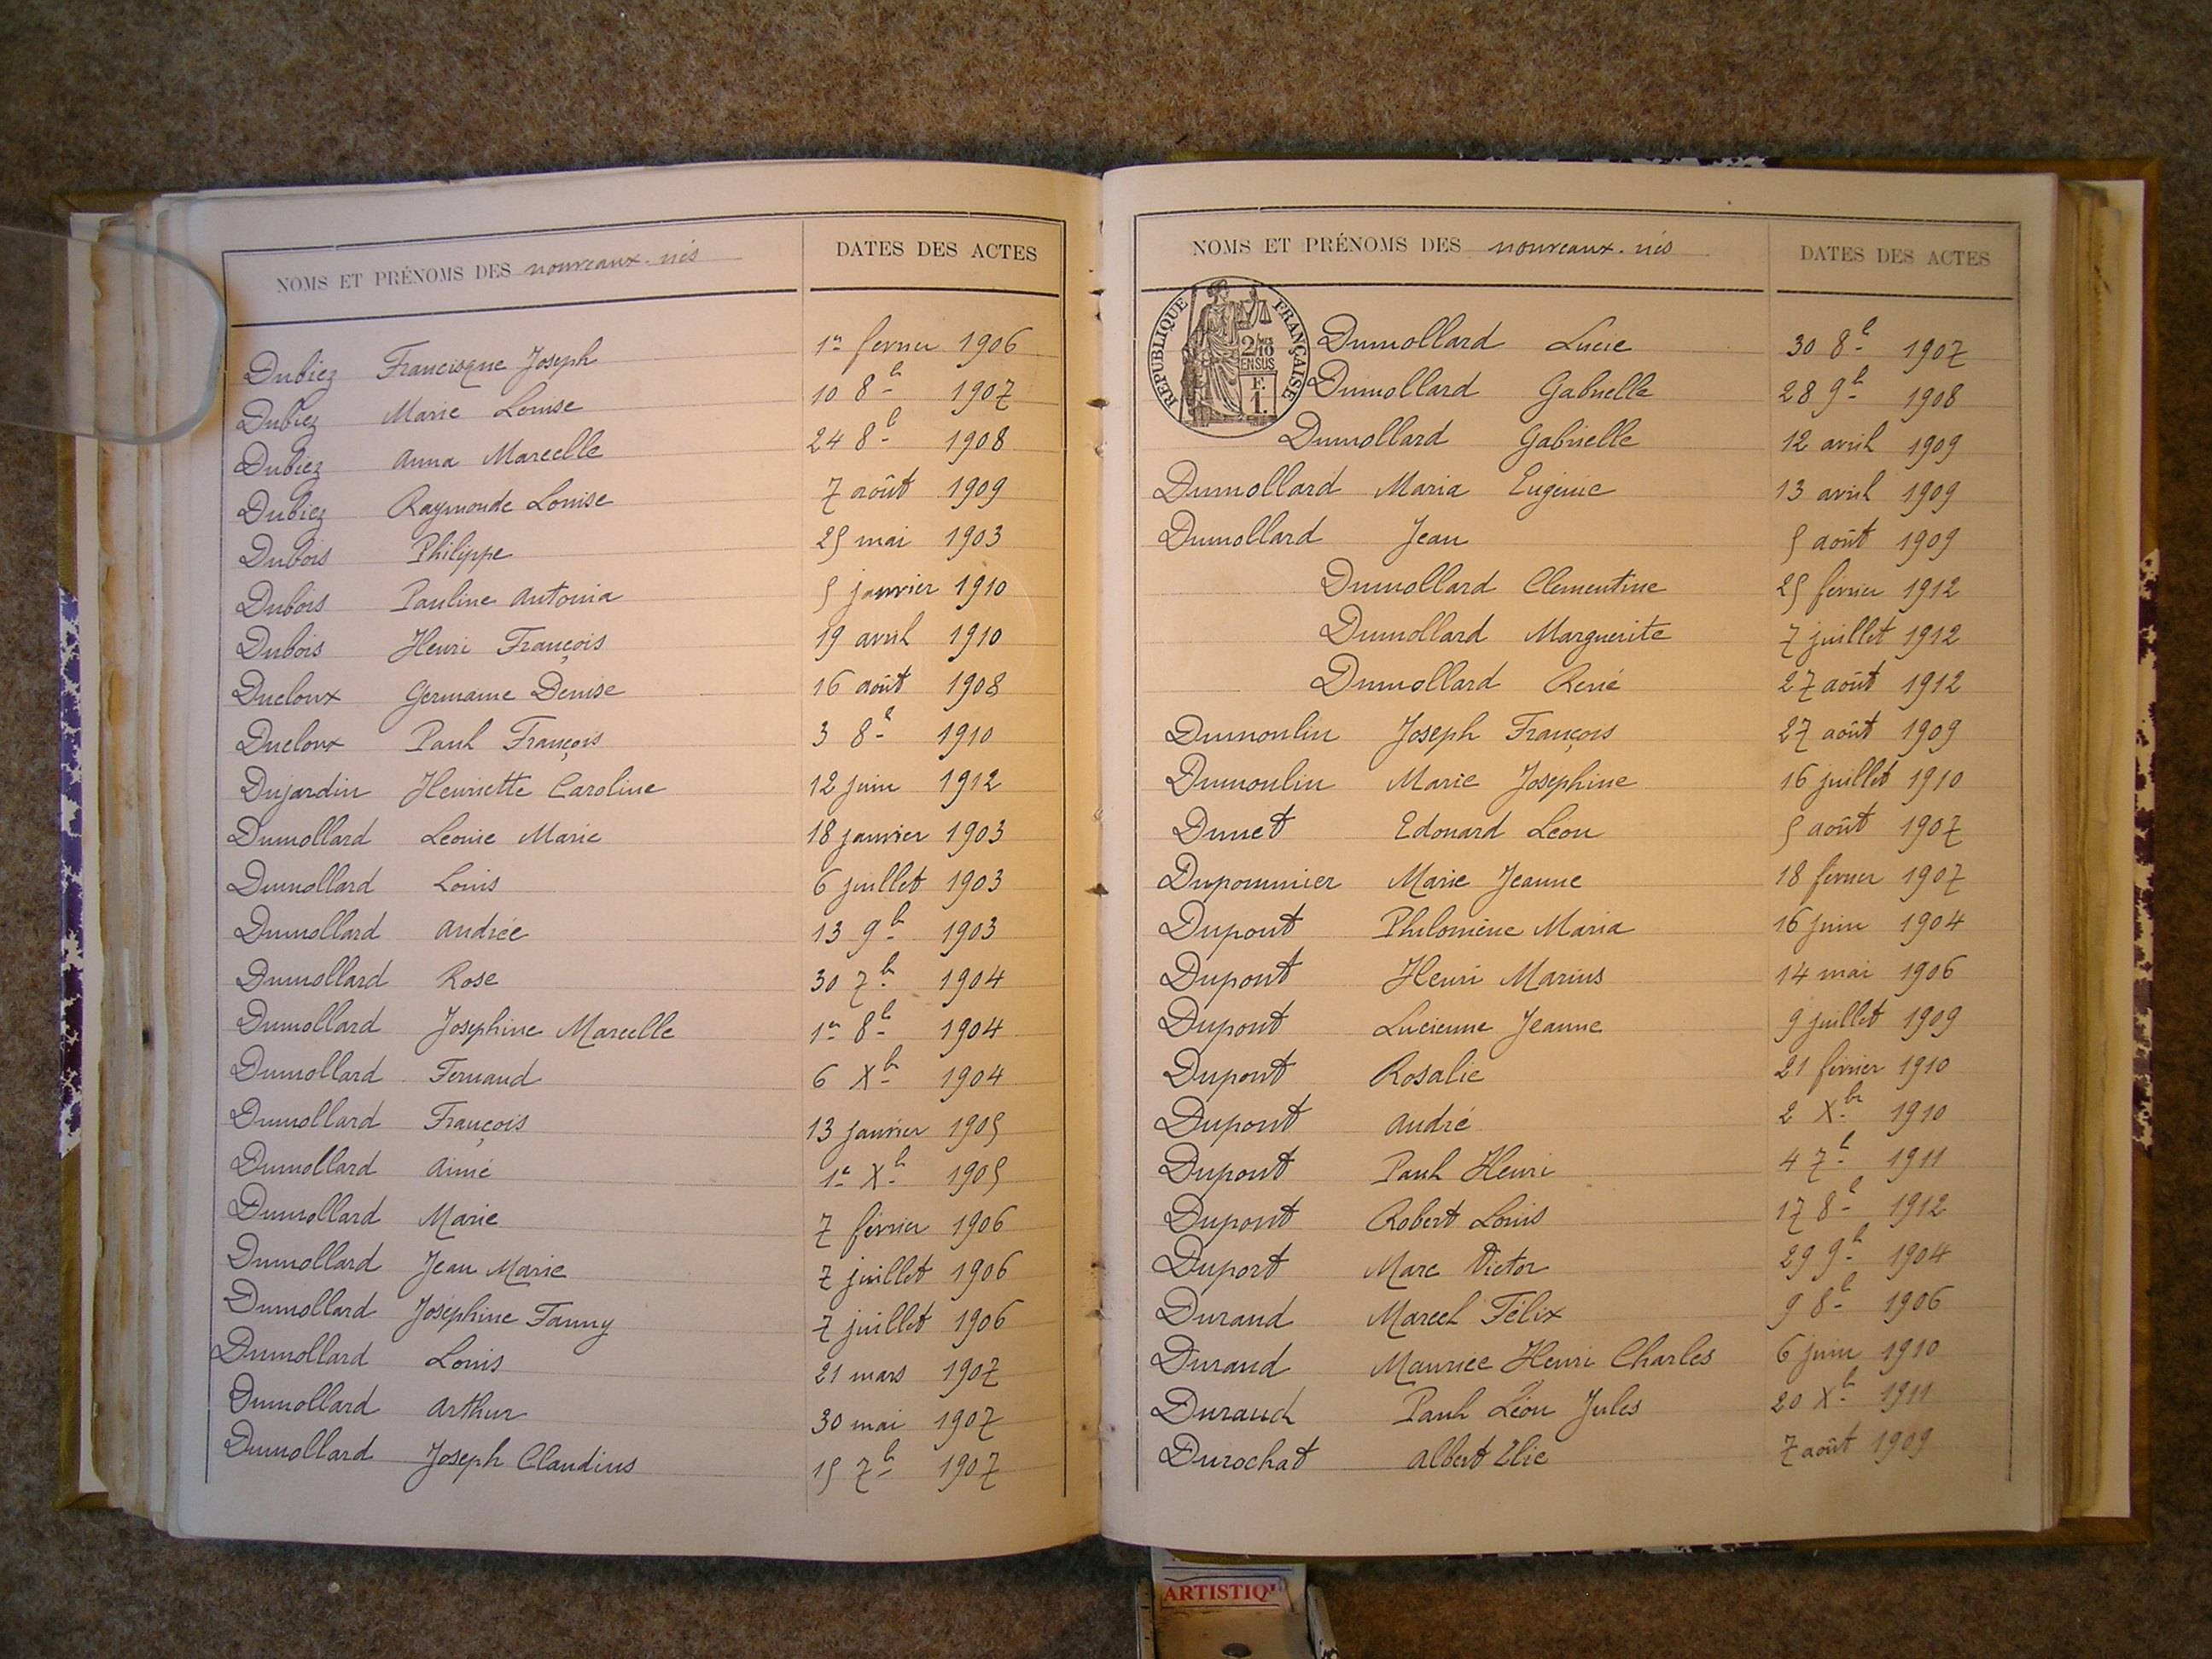 NOMS ET PRÉNOMS DES nouveaux-nés DATES DES ACTES
Dubiez Francisque Joseph 1er fevrier 1906
Dubiez Marie Louise 10 8b 1907
Dubiez Anna Marcelle 24 8b 1908
Dubiez Raymonde Louise 7 août 1909
Dubois Philippe 25 mai 1903
Dubois Pauline Antonia 5 janvier 1910
Dubois Henri François 19 avril 1910
Ducloux Germaine Denise 16 août 1908
Ducloux Paul François 3 8b 1910
Dujardin Henriette Caroline 12 juin 1912
Dumollard Léonie Marie 18 janvier 1903
Dumollard Louis 6 juillet 1903
Dumollard Andrée 13 9b 1903
Dumollard Rose 30 7b 1904
Dumollard Joséphine Marcelle 1er 8b 1904
Dumollard Fernand 6 Xb 1904
Dumollard François 13 janvier 1905
Dumollard Aimé 1er Xb 1905
Dumollard Marie 7 février 1906
Dumollard Jean Marie 7 juillet 1906
Dumollard Joséphine Fanny 7 juillet 1906
Dumollard Louis 21 mars 1907
Dumollard Arthur 30 mai 1907
Dumollard Joseph Claudius 15 7b 1907
NOMS ET PRÉNOMS DES nouveaux-nés DATES DES ACTES
RÉPUBLIQUE FRANÇAISE
2/10
EN SUS
F.
1.
Dumollard Lucie 30 8b 1907
Dumollard Gabrielle 28 9b 1908
Dumollard Gabrielle 12 avril 1909
Dumollard Maria Eugénie 13 avril 1909
Dumollard Jean 5 août 1909
Dumollard Clementine 25 février 1912
Dumollard Marguerite 7 juillet 1912
Dumollard René 27 août 1912
Dumoulin Joseph François 27 août 1909
Dumoulin Marie Joséphine 16 juillet 1910
Dunet Edouard Léon 5 août 1907
Dupommier Marie Jeanne 18 février 1907
Dupont Philomène Maria 16 juin 1904
Dupont Henri Marius 14 mai 1906
Dupont Lucienne Jeanne 9 juillet 1909
Dupont Rosalie 21 février 1910
Dupont André 2 Xbr 1910
Dupont Paul Henri 4 7b 1911
Dupont Robert Louis 17 8b 1912
Duport Marc Victor 29 9b 1904
Durand Marcel Félix 9 8b 1906
Durand Maurice Henri Charles 6 juin 1910
Duraud Paul Léon Jules 20 Xb 1911
Durochat Albert Elie 7 août 1909
ARTISTIQU